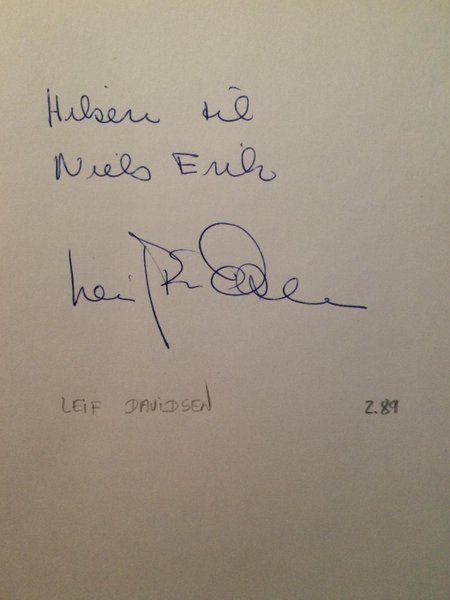 Hilsen til
Niels Erik
Leif Davidsen
LEIF DAVIDSEN 2.89